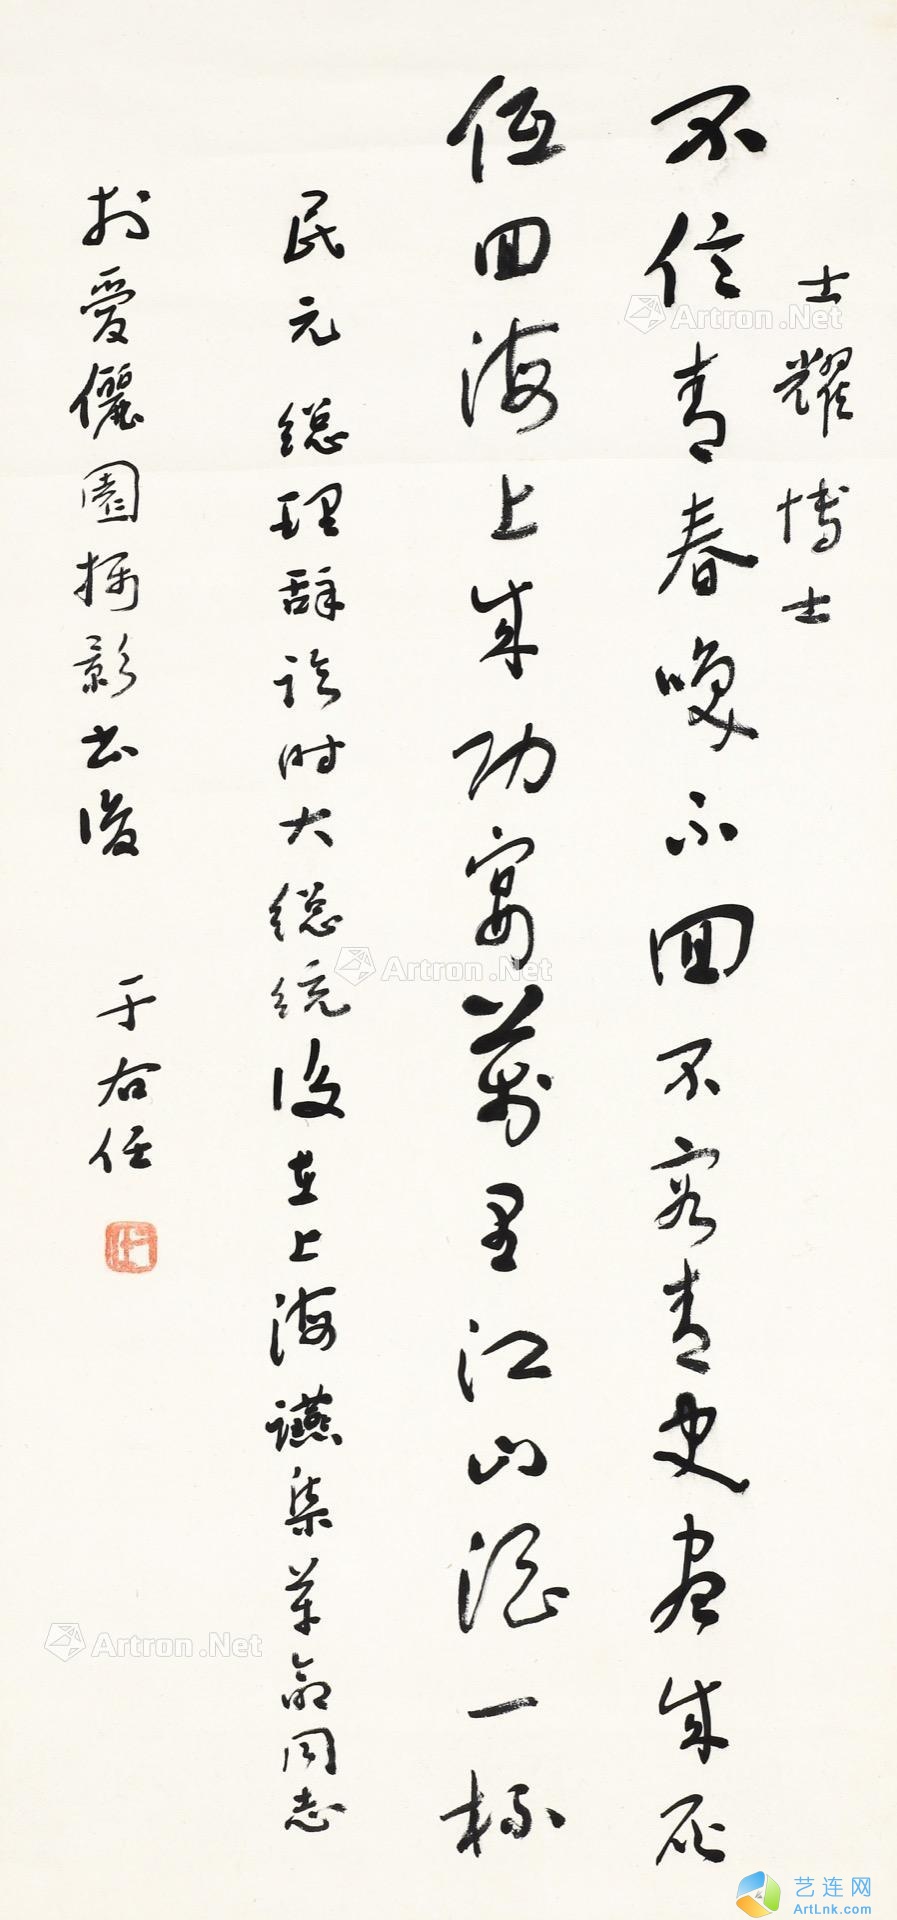 士耀博士
不信青春喚不回不容青史盡成灰
低回海上成功宴萬里江山酒一杯
民元總理辭臨時大總統後在上海讌集革命同志
於愛儷園攝影書後 于右任
Artron.Net
Artron.Net
Artron.Net
艺连网
ArtLnk.com